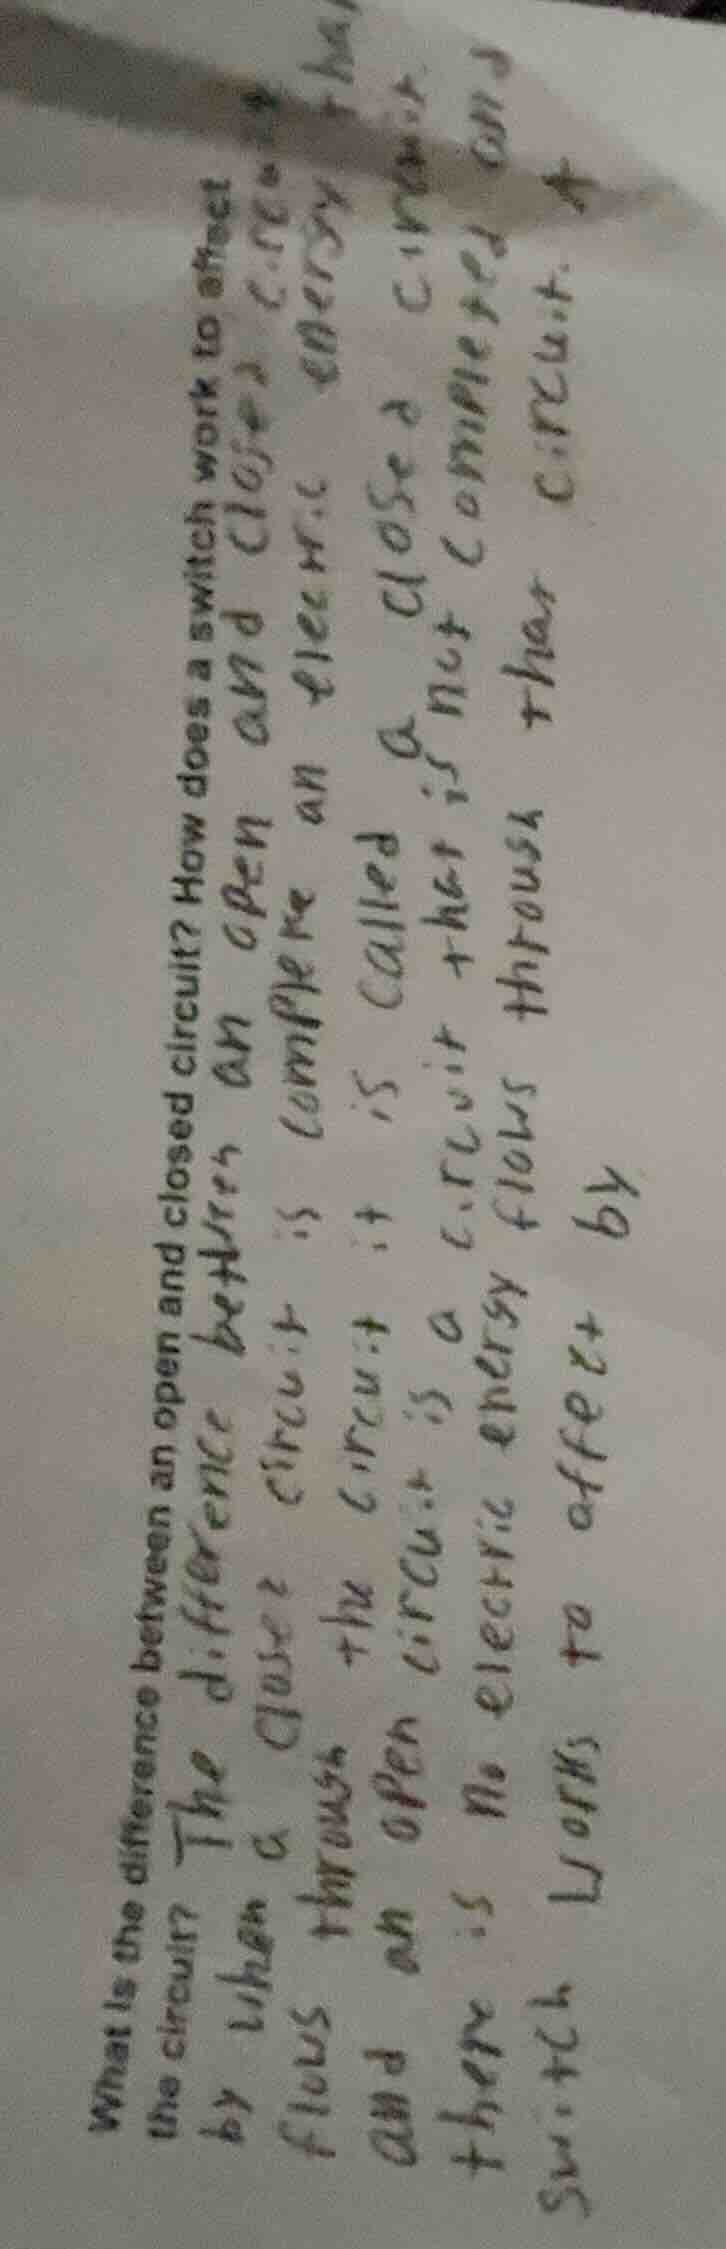 What is the difference between an open and closed circuit? How does a switch work to affect
the circuit? The difference between an open and closed circuit
by when a closed circuit is complete an electric energy that
flows through the circuit it is called a closed circuit
and an open circuit is a circuit that is not completed and
there is no electric energy flows through that circuit. A
switch works to affect by